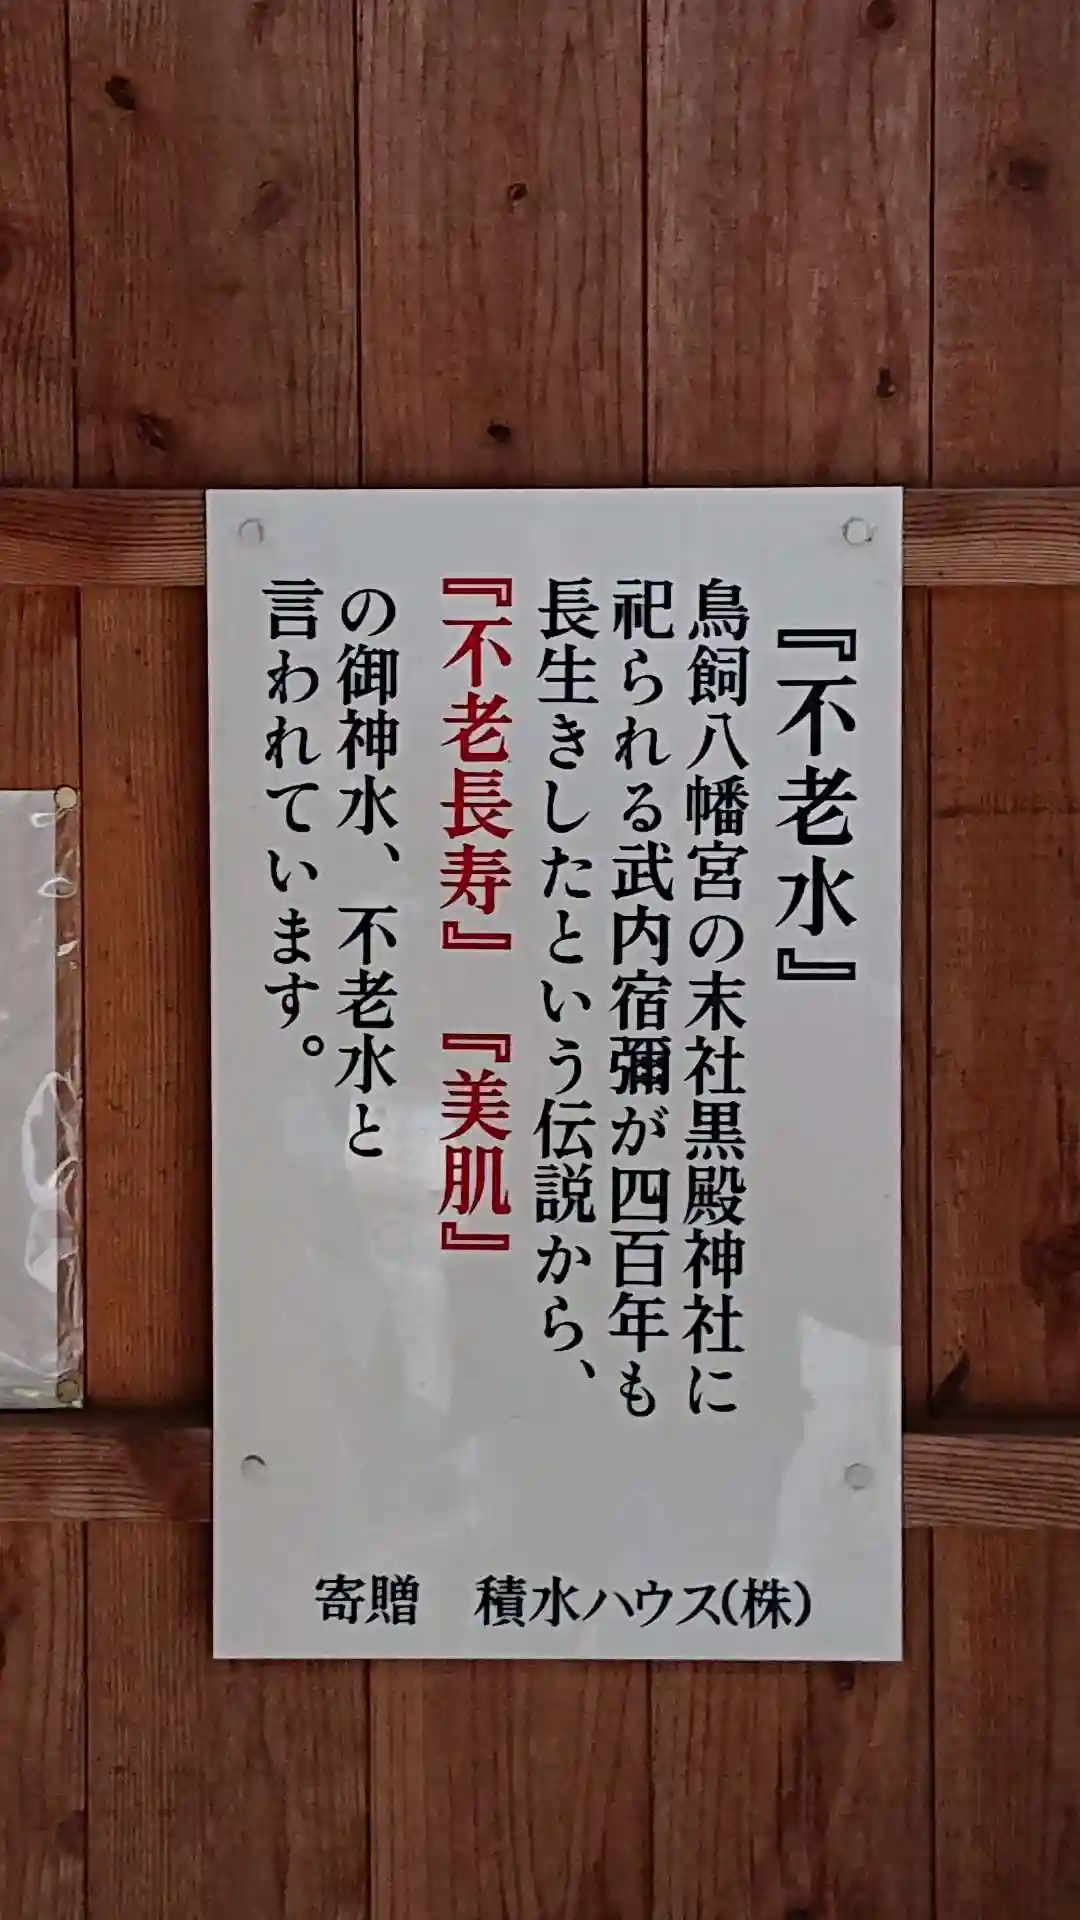 『不老水』
鳥飼八幡宮の末社黒殿神社に
祀られる武内宿彌が四百年も
長生きしたという伝説から、
『不老長寿』　『美肌』
の御神水、不老水と
言われています。
寄贈　積水ハウス(株)